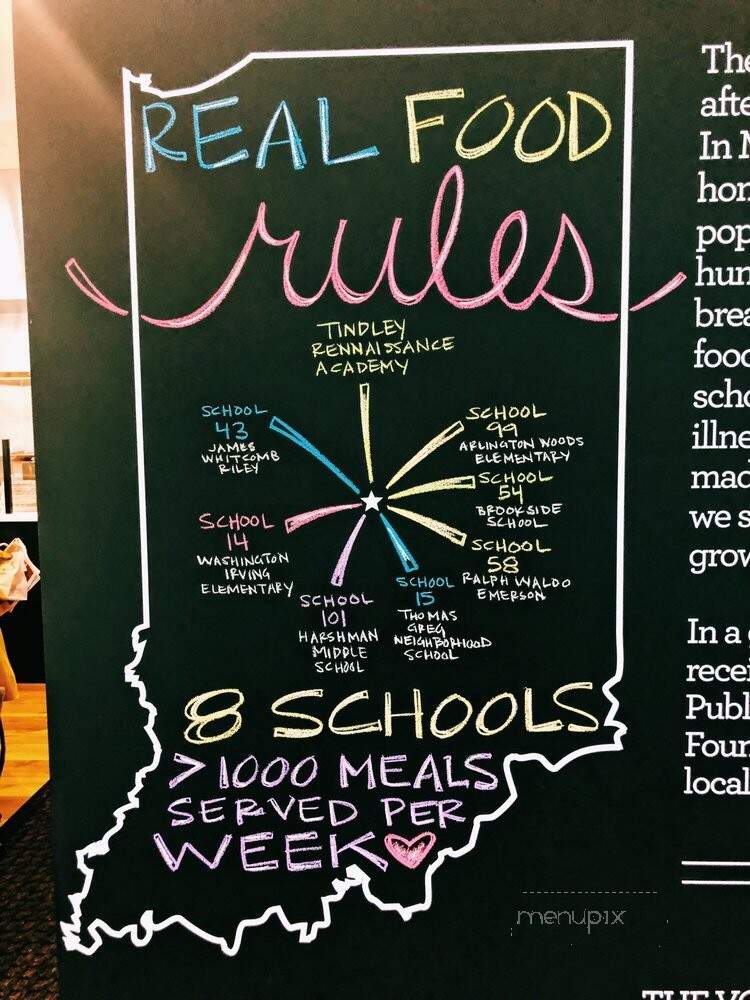 REAL FOOD
rules
TINDLEY
RENNAISSANCE
ACADEMY
SCHOOL
43
JAMES
WHITCOMB
RILEY
SCHOOL
99
ARLINGTON WOODS
ELEMENTARY
SCHOOL
54
BROOKSIDE
SCHOOL
SCHOOL
14
WASHINGTON
IRVING
ELEMENTARY
SCHOOL
58
RALPH WALDO
EMERSON
SCHOOL
101
HARSHMAN
MIDDLE
SCHOOL
SCHOOL
15
THOMAS
GREG
NEIGHBORHOOD
SCHOOL
8 SCHOOLS
>1000 MEALS
SERVED PER
WEEK
The
afte
In M
hon
pop
hun
brea
food
scho
illne
mad
we s
grow
In a
rece
Publ
Foun
local
menupix
THE YO